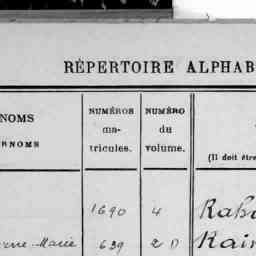 RÉPERTOIRE ALPHAB
NOMS
RNOMS
NUMÉROS
ma-
tricules.
NUMÉRO
du
volume.
(Il doit être
1690 4
Marie 639 2 D Rain